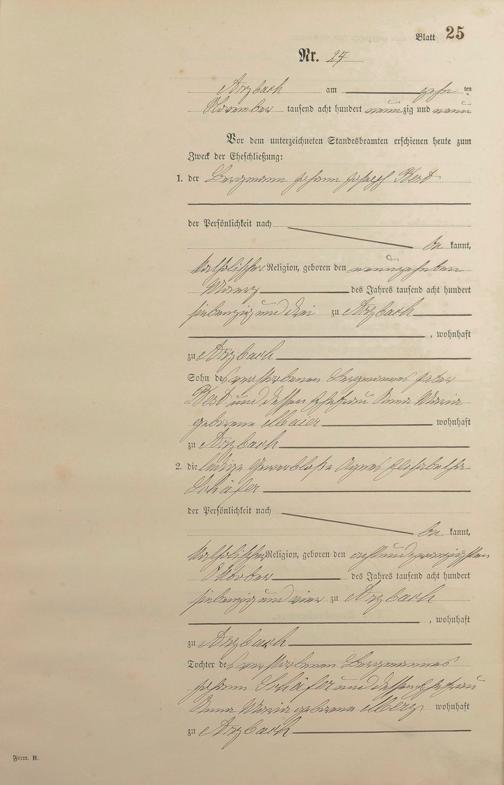 Blatt 25
Nr. 27
Arzbach am zehn ten
November tausend acht hundert neunzig und neun
Vor dem unterzeichneten Standesbeamten erschienen heute zum
Zweck der Eheschließung:
1. der Bergmann Johann Joseph
der Persönlichkeit nach
be kannt,
katholischer Religion, geboren den neunzehnten
März des Jahres tausend acht hundert
siebenzig und drei zu Arzbach
, wohnhaft
zu Arzbach
Sohn des verstorbenen Bergmannes Peter
und dessen Ehefrau Anna Maria
geborene Maier wohnhaft
zu Arzbach
2. die ledige gewerblose Agnes Elisabetha
Schäfer
der Persönlichkeit nach
be kannt,
katholischer Religion, geboren den achtundzwanzigsten
Oktober des Jahres tausend acht hundert
siebenzig und vier zu Arzbach
, wohnhaft
zu Arzbach
Tochter des verstorbenen Bergmannes
Johann Schäfer und dessen Ehefrau
Anna Maria geborene wohnhaft
zu Arzbach
Form. B.